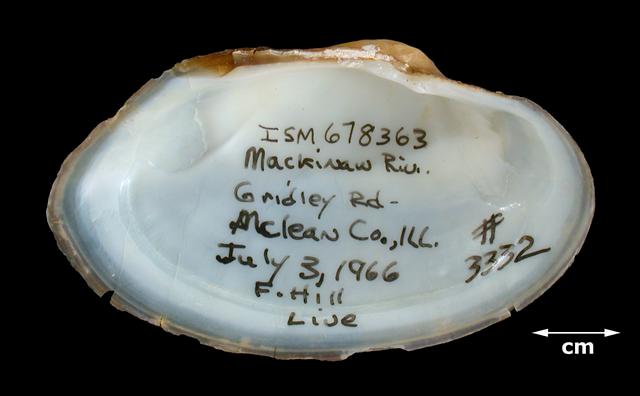 ISM 678363
Mackinaw Riv.
Gridley Rd-
Mclean Co., ILL.
July 3, 1966
F. Hill
Live
#
3332
cm